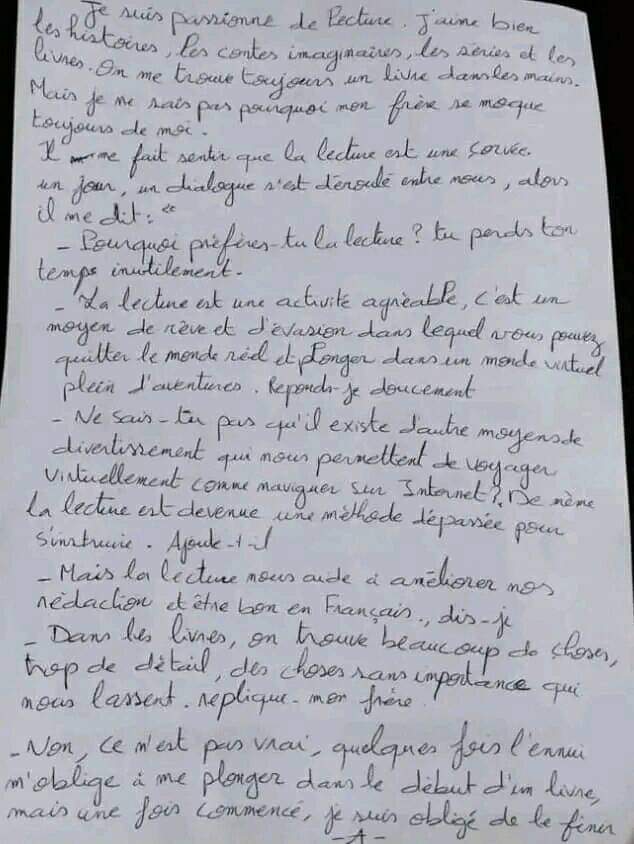 Je suis passionné de lecture. J'aime bien
les histoires, les contes imaginaires, les séries et les
livres. On me trouve toujours un livre dans les mains.
Mais je ne sais pas pourquoi mon frère se moque
toujours de moi.
Il me fait sentir que la lecture est une corvée.
un jour, un dialogue s'est déroulé entre nous, alors
il me dit : "
- Pourquoi préfères-tu la lecture ? tu perds ton
temps inutilement.
- La lecture est une activité agréable, c'est un
moyen de rêve et d'évasion dans lequel vous pouvez
quitter le monde réel et plonger dans un monde virtuel
plein d'aventures. Reponds-je doucement
- Ne sais-tu pas qu'il existe d'autre moyens de
divertissement qui nous permettent de voyager
virtuellement comme naviguer sur Internet ?. De même
la lecture est devenue une méthode dépassée pour
s'instruire. Ajoute-t-il
- Mais la lecture nous aide à améliorer nos
rédaction et être bon en Français., dis-je
- Dans les livres, on trouve beaucoup de choses,
trop de détail, des choses sans importance qui
nous lassent. réplique-mon frère.
- Non, ce n'est pas vrai, quelques fois l'ennui
m'oblige à me plonger dans le début d'un livre,
mais une fois commencé, je suis obligé de le finir
-A-